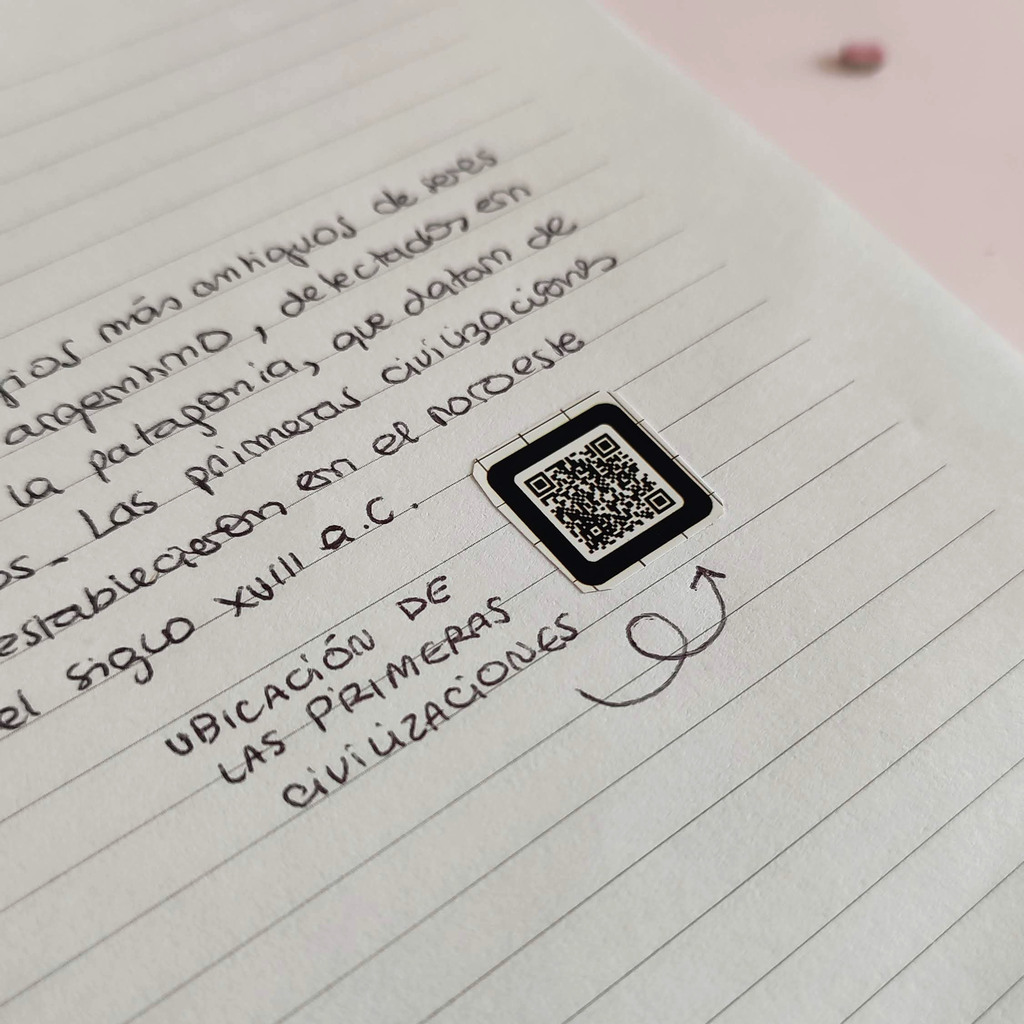 más antiguos de seres
argentino, detectados en
la patagonia, que datan de
. Las primeras civilizaciones
establecieron en el noroeste
el siglo XVIII a.C.
UBICACIÓN DE
LAS PRIMERAS
CIVILIZACIONES